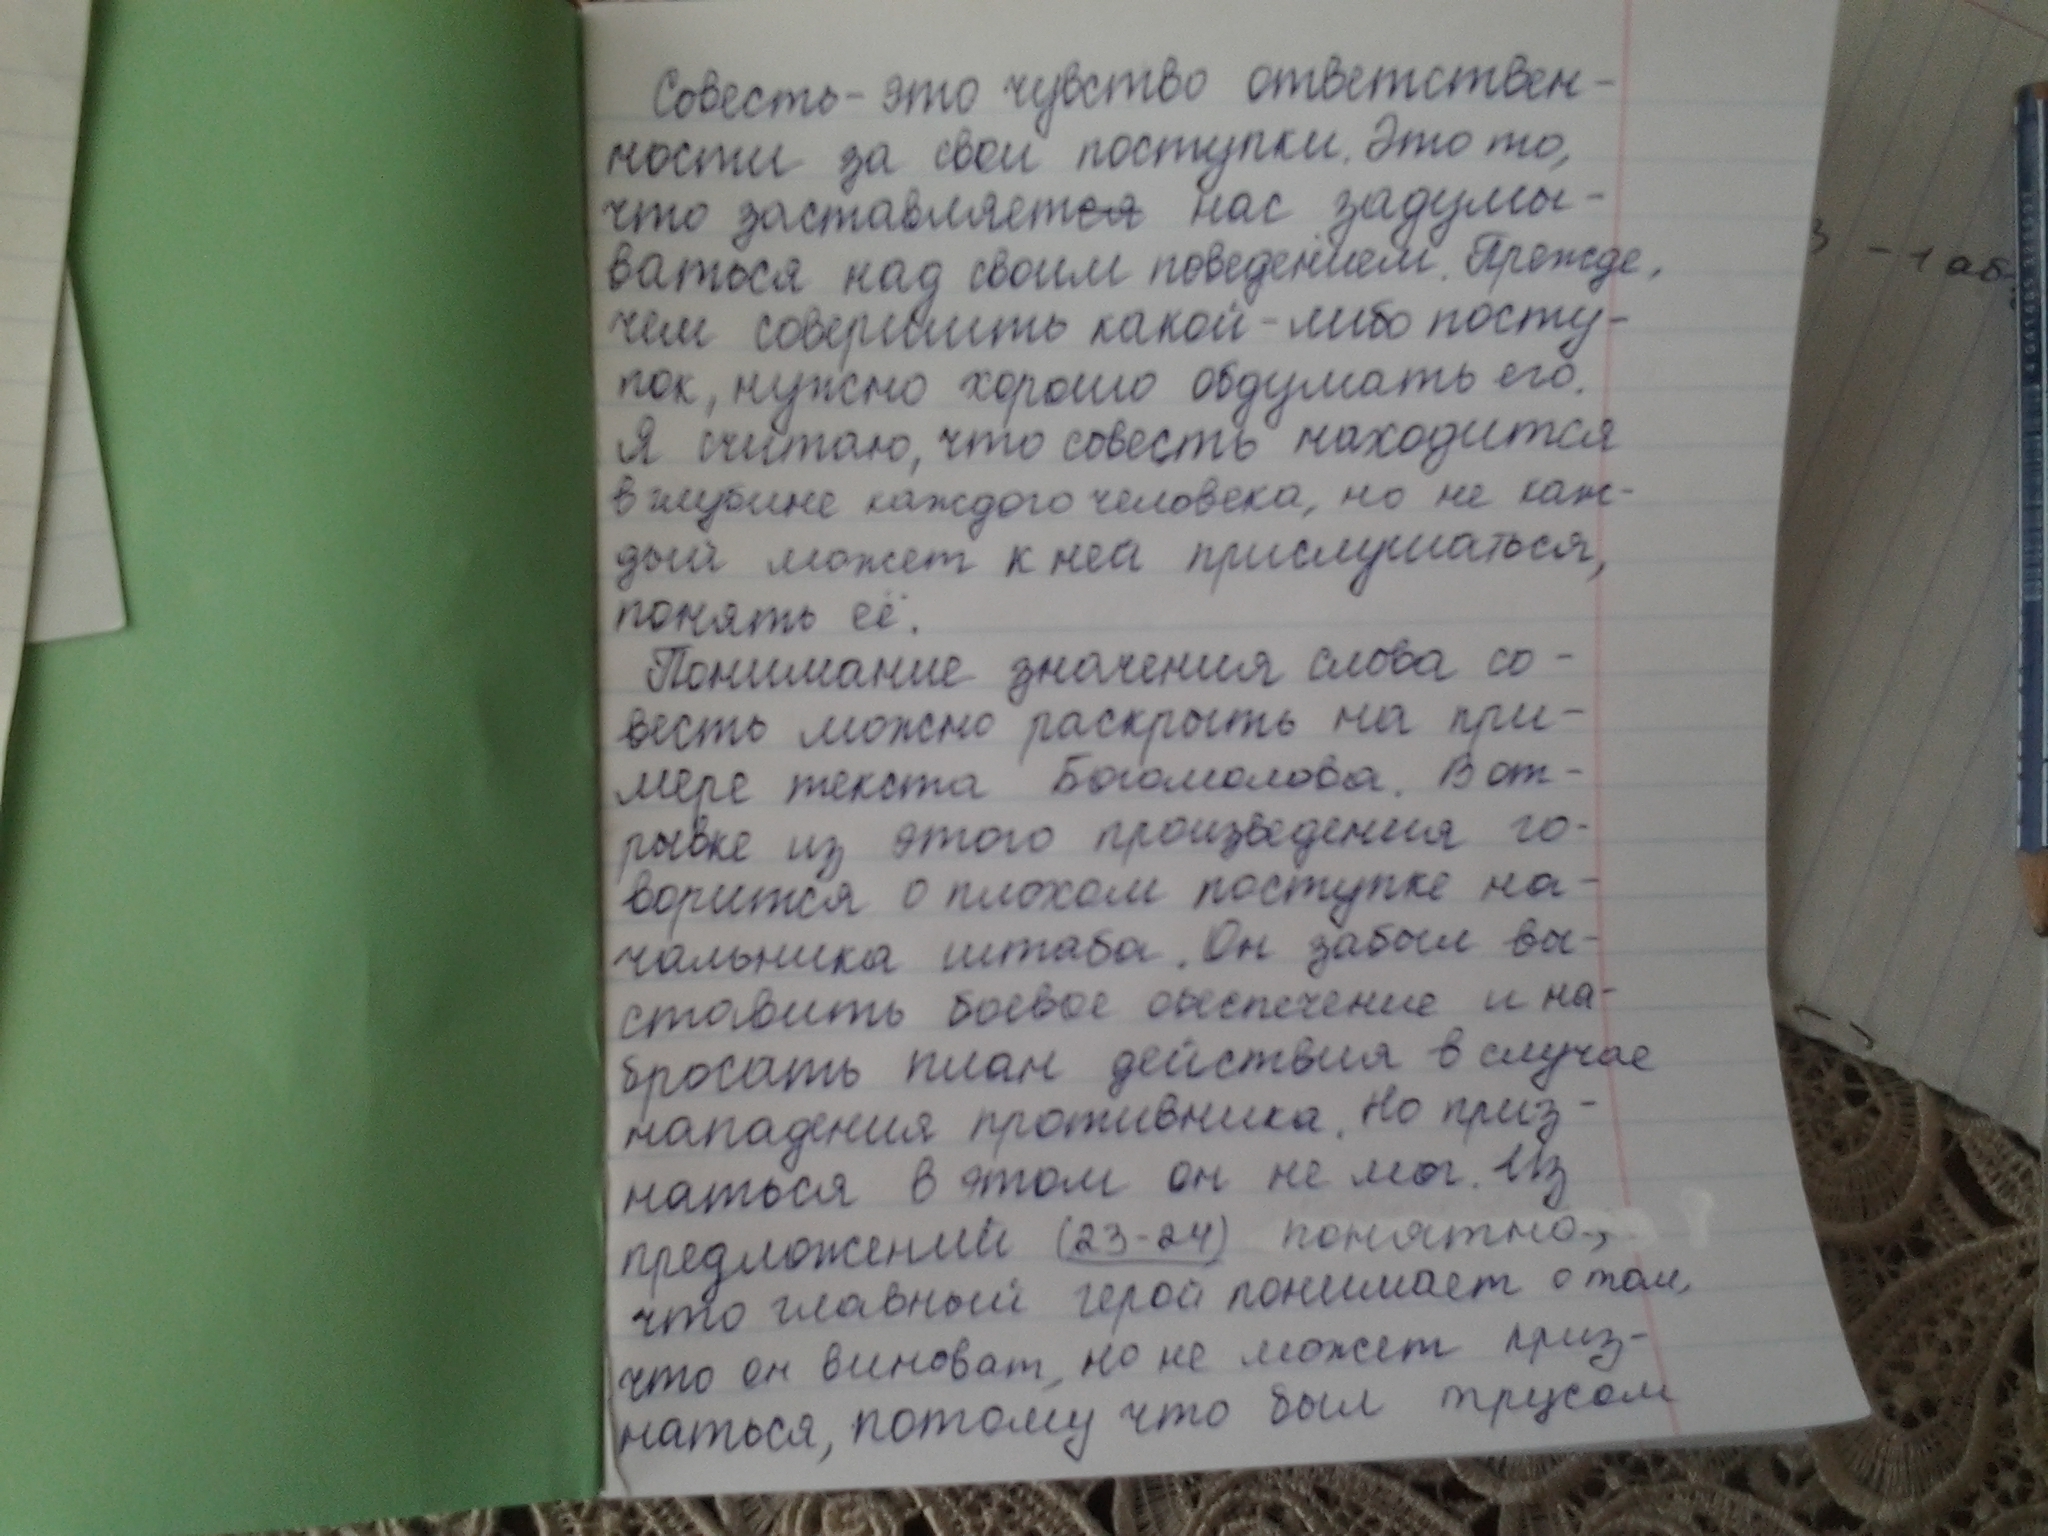 Совесть - это чувство ответствен-
ности за свои поступки. Это то,
что заставляется нас задумы-
ваться над своим поведением. Прежде,
чем совершить какой-либо посту-
пок, нужно хорошо обдумать его.
Я считаю, что совесть находится
в глубине каждого человека, но не каж-
дый может к ней прислушаться,
понять её.
Понимание значения слова со-
весть можно раскрыть на при-
мере текста Богомолова. В от-
рывке из этого произведения го-
ворится о плохом поступке на-
чальника штаба. Он забыл вы-
ставить боевое обеспечение и на-
бросать план действия в случае
нападения противника. Но приз-
наться в этом он не мог. Из
предложений (23-24) понятно,
что главный герой понимает о том,
что он виноват, но не может приз-
наться, потому что был трусом
- 1 аб